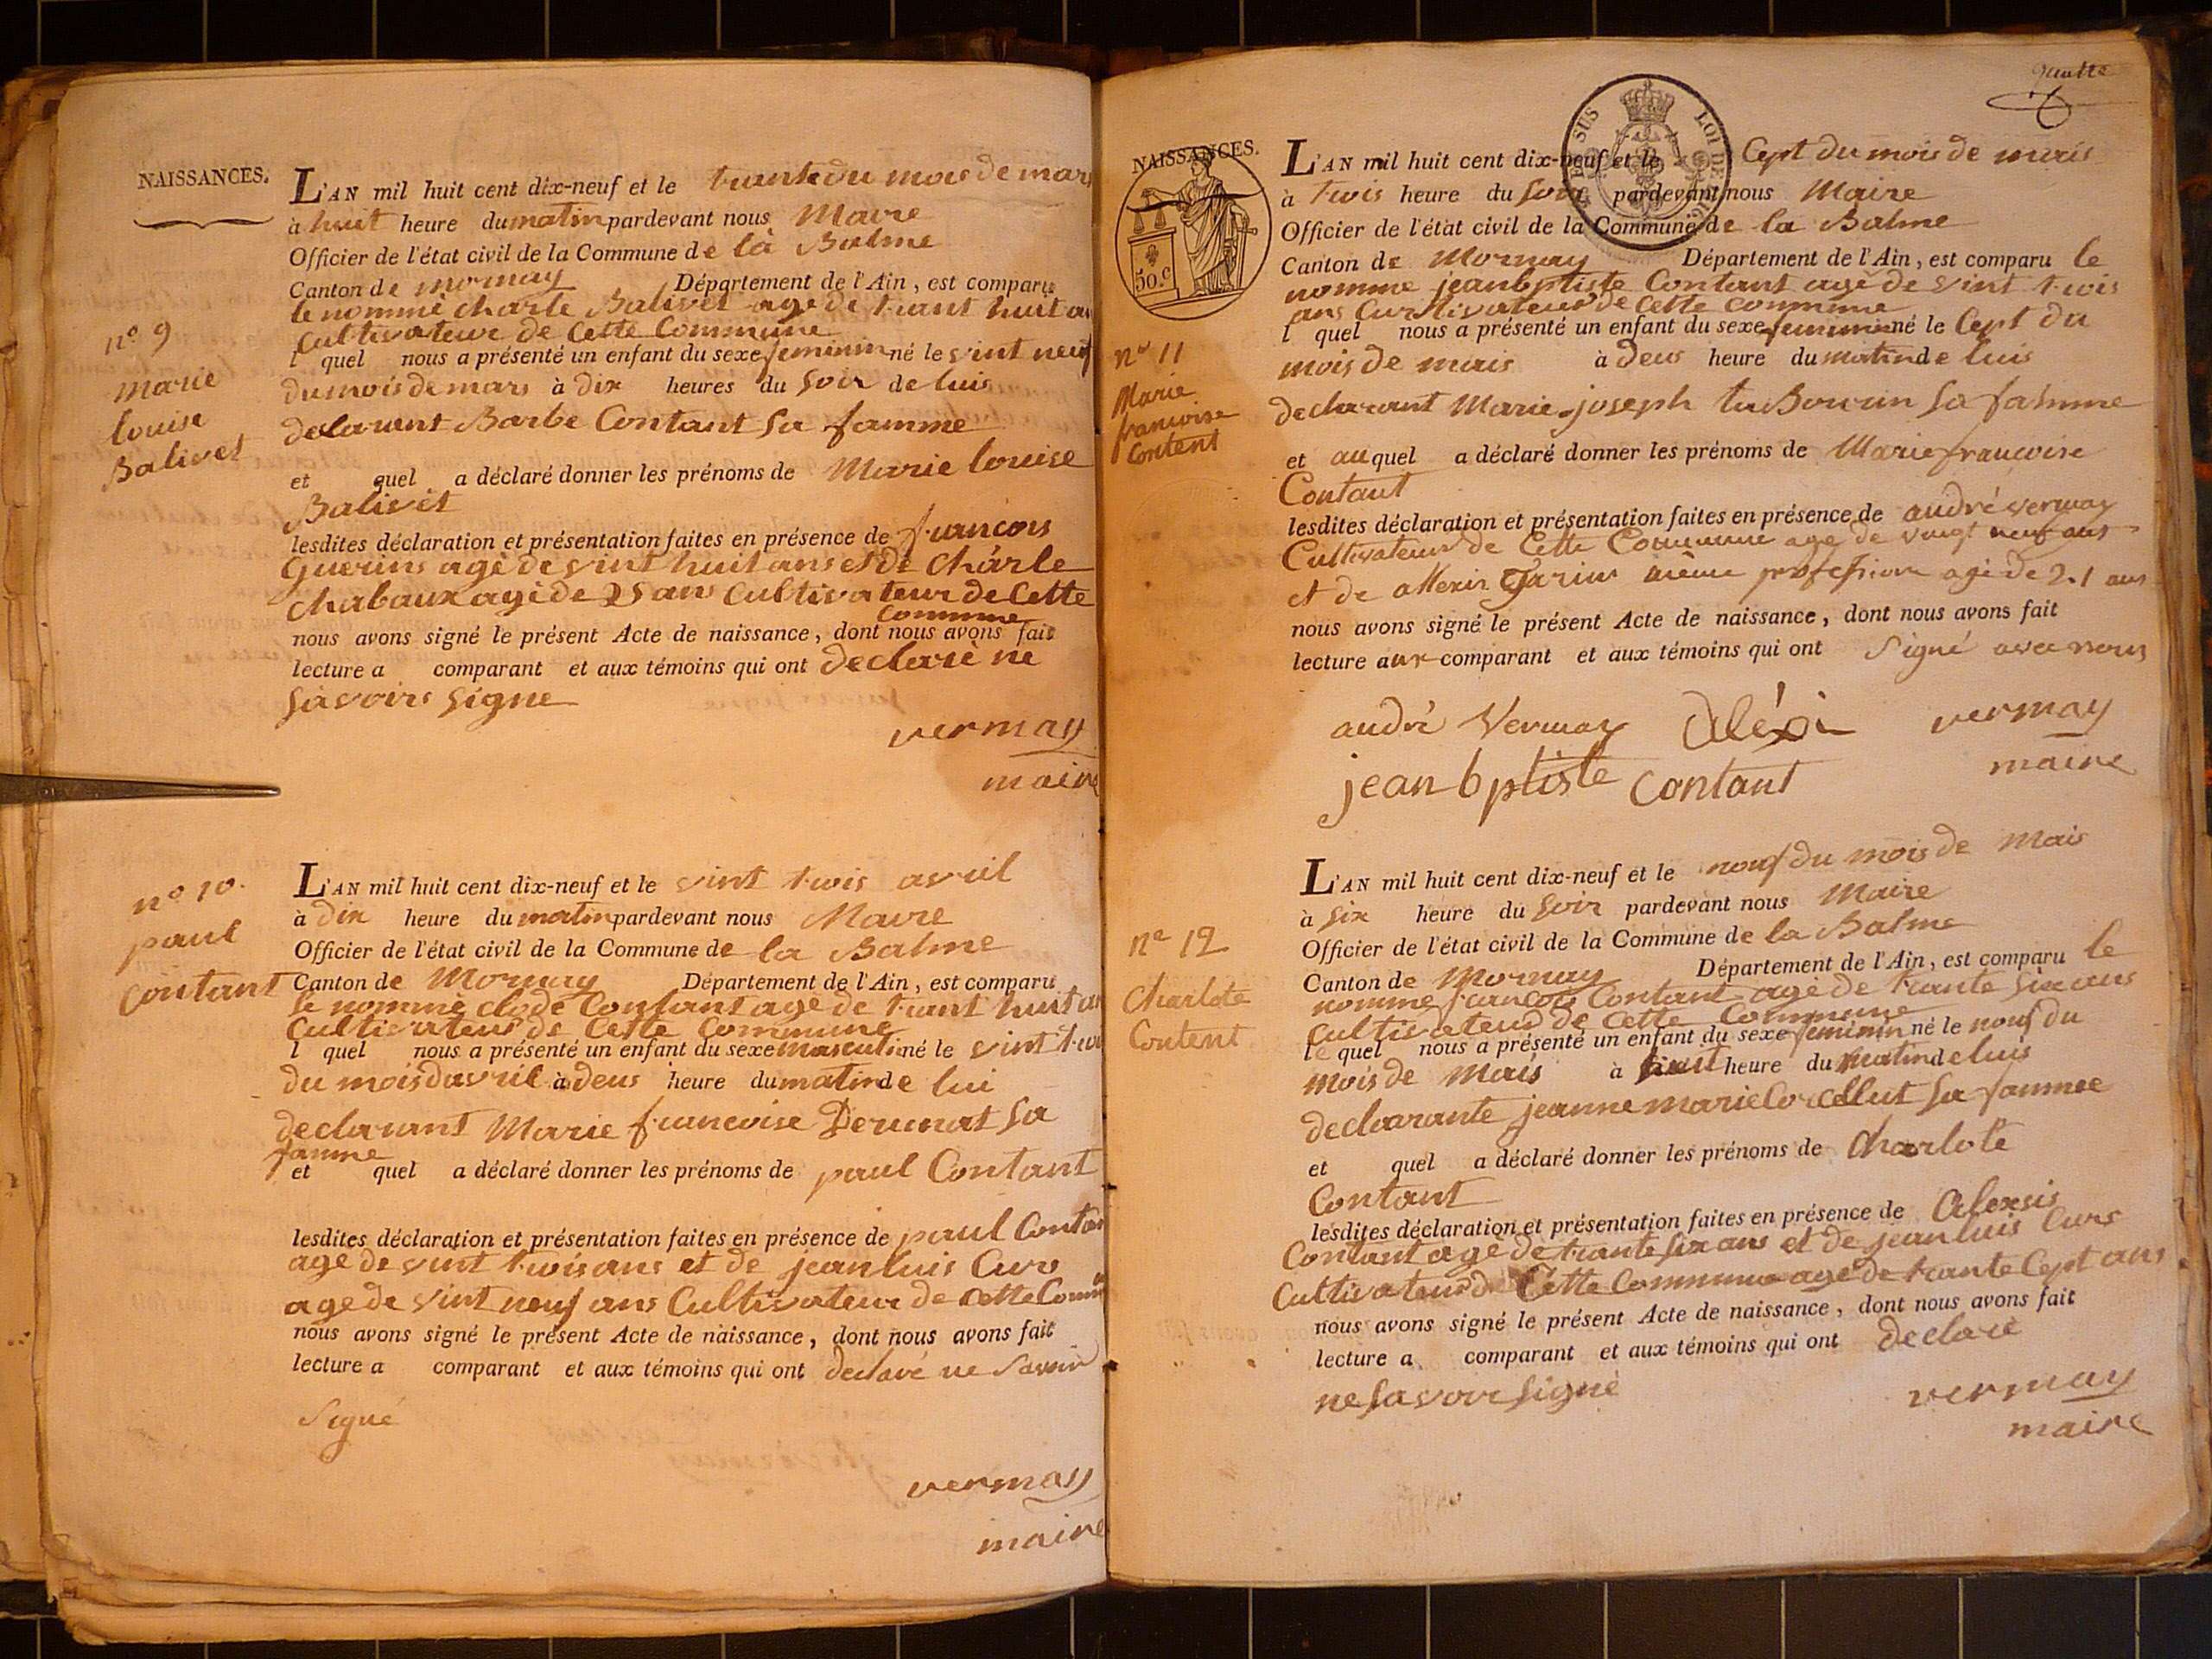 NAISSANCES.
L'AN mil huit cent dix-neuf et le trante du mois de mars
à huit heure du matin pardevant nous Maire
Officier de l'état civil de la Commune de la Balme
Canton de mornay Département de l'Ain, est comparu
le nommé charle Balivet age de trant huit an
cultivateur de Cette Commune
l quel nous a présenté un enfant du sexe feminin né le vint neuf
du mois de mars à dix heures du soir de luis
declarent Barbe Contant sa famme
et quel a déclaré donner les prénoms de Marie louise
Balivet
lesdites déclaration et présentation faites en présence de francois
Guerins agé de vint huit ans et de Charle
chabaux agé de 25 ans Cultivateur de Cette
Commune
nous avons signé le présent Acte de naissance, dont nous avons fait
lecture a comparant et aux témoins qui ont declaré ne
savoirs signe
vermay
maire
no 9
marie
louise
Balivet
L'AN mil huit cent dix-neuf et le vint trois avril
à dix heure du matin pardevant nous Maire
Officier de l'état civil de la Commune de la Balme
Canton de Mornay Département de l'Ain, est comparu
le nommé clode Contant age de trant huit an
Cultivateur de Cette Commune
l quel nous a présenté un enfant du sexe masculin né le vint troi
du mois davril à deus heure du matin de lui
declarant Marie francoise Derunat sa
famme
et quel a déclaré donner les prénoms de paul Contant
lesdites déclaration et présentation faites en présence de paul Contan
age de vint trois ans et de jean luis Curs
age de vint neuf ans Cultivateur de Cette Comm
nous avons signé le présent Acte de naissance, dont nous avons fait
lecture a comparant et aux témoins qui ont declaré ne Savoir
Signé
vermay
maire
no 10.
paul
contant
NAISSANCES.
50.c
L'AN mil huit cent dix-neuf et le Cept du mois de mais
à trois heure du soir pardevant nous Maire
Officier de l'état civil de la Commune de la Balme
Canton de Mornay Département de l'Ain, est comparu le
nomme jean bptiste Contant agé de vint trois
ans Curltivateur de Cette commune
l quel nous a présenté un enfant du sexe feminin né le Cept du
mois de mais à deus heure du matin de luis
declarant Marie joseph sa famme
et au quel a déclaré donner les prénoms de Marie francoise
Contant
lesdites déclaration et présentation faites en présence de andré vermay
Cultivateur de Cette Commune age de vingt neuf ans
et de même profession agé de 21 ans
nous avons signé le présent Acte de naissance, dont nous avons fait
lecture aux comparant et aux témoins qui ont Signé avec nous
andré Vermay aléxi vermay
maire
jean bptiste contant
no 11
Marie
francoise
Content
L'AN mil huit cent dix-neuf et le nouf du mois de Mais
à six heure du soir pardevant nous Maire
Officier de l'état civil de la Commune de la Balme
Canton de Mornay Département de l'Ain, est comparu le
nomme francois Contant age de trante six ans
cultivateur de Cette Commune
le quel nous a présenté un enfant du sexe feminin né le nouf du
mois de Mais à huit heure du matin de luis
declarante jeanne marie sa famme
et quel a déclaré donner les prénoms de Charlote
Contant
lesdites déclaration et présentation faites en présence de Alexsis
Contant age de trante six ans et de jean luis Curs
Cultivateur de Cette Commune age de trante Cept ans
nous avons signé le présent Acte de naissance, dont nous avons fait
lecture a comparant et aux témoins qui ont declaré
ne savoir signé
vermay
maire
no 12
Charlote
Content